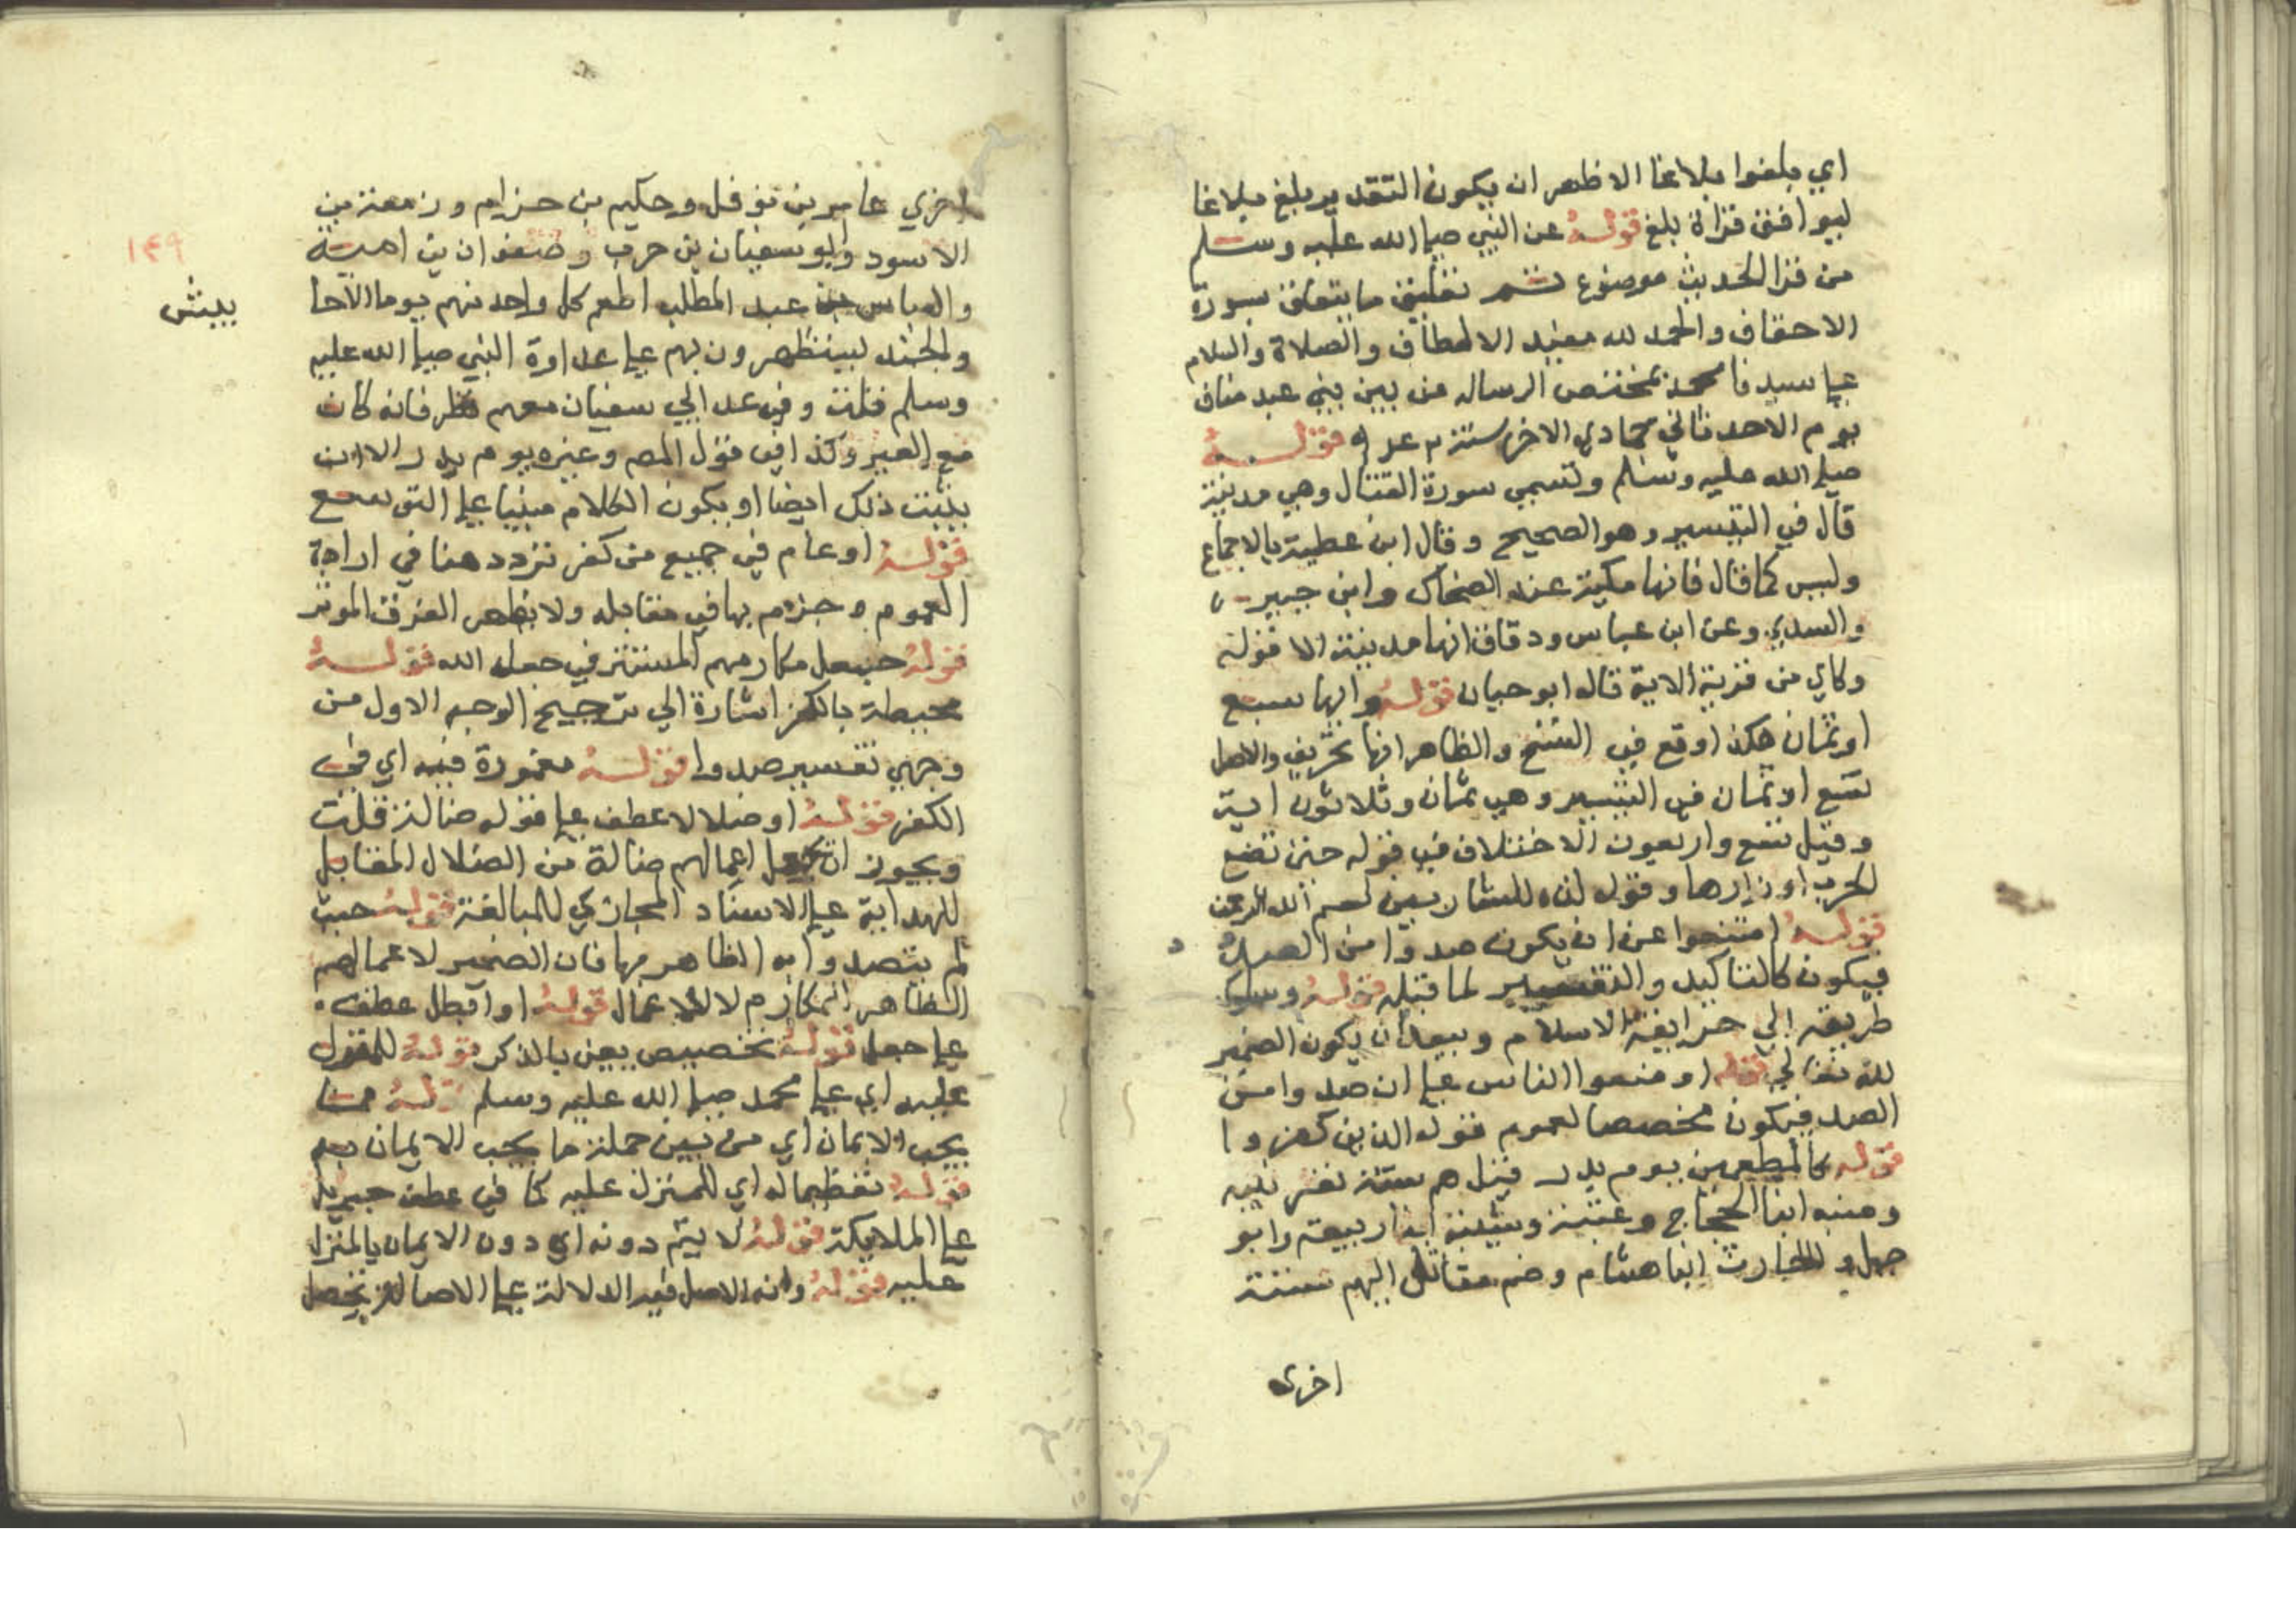 اي بلغوا بلاغا الاظهر ان يكون التقدير بلغ بلاغا
ليوافق قراة بلغ قوله عن النبي صلى الله عليه وسلم
من قرا الحديث موضوع تم تعليق ما يتعلق بسورة
الاحقاف والحمد لله مفيد الالطاف والصلاة والسلام
على سيدنا محمد مختص الرساله من بين بني عبد مناف
يوم الاحد ثاني جمادي الاخر سنة قوله
صلى الله عليه وسلم وتسمى سورة القتال وهي مدنية
قال في التيسير وهو الصحيح وقال ابن عطية بالاجماع
وليس كما قال فانها مكية عند الضحاك وابن جبير
والسدي وعن ابن عباس وقتادة انها مدنية الا قوله
وكاي من قرية الاية قاله ابو حيان قوله وايها سبع
او ثمان هكذا وقع في النسخ والظاهر انها تحريف والاصل
تسع او ثمان في التيسير وهي ثمان وثلاثون اية
وقيل تسع واربعون الاختلاف في قوله حتى تضع
الحرب اوزارها وقوله لذة للشاربين بسم الله الرحمن
قوله امتنعوا عن ان يكون صدوا من الصدود
فيكون كالتاكيد والتفسير لما قبله قوله وسلوك
طريقه الي حزايغة الاسلام وبيعد ان يكون الضمير
لله تعالى قوله او منعوا الناس على ان صدوا من
الصد فيكون مخصصا لعموم قوله الذين كفروا
قوله كالمطعمين يوم بدر قيل هم ستة نفر نبيه
ومنبه ابنا الحجاج وعتبة وشيبة ابنا ربيعة وابو
جهل والحارث ابنا هشام وضم مقاتل اليهم ستة
اخرى
اخري عامر بن نوفل وحكيم بن حزام وزمعة بن
الاسود وابو سفيان بن حرب وصفوان بن امية
والعباس بن عبد المطلب اطعم كل واحد منهم يوما الاحا
١٤٩
بيش
والجند ليستظهرون بهم على عداوة النبي صلى الله عليه
وسلم قلت وفي عد ابي سفيان معهم نظر فانه كان
مع العير وكذا في قول المص وغيره يوم بدر الا ان
يثبت ذلك ايضا او يكون الكلام مبنيا على التوسع
قوله او عام في جميع من كفر تردد هنا في ارادة
العموم وجزم بها في مقابله ولا يظهر الفرق الموثر
قوله جعل مكارمهم المستتر في جعل الله قوله
محيطة بالكفر اشارة الي ترجيح الوجه الاول من
وجهي تفسير صدوا قوله مغمورة فيه اي في
الكفر قوله او ضلالا عطف على قوله ضالة قلت
ويجوز ان يجعل اعمالهم ضالة من الضلال المقابل
للهداية على الاسناد المجازي للمبالغة قوله حيث
لم يقصدوا به الظاهر بها فان الضمير لاعمالهم
الظاهر المكارم لا للاعمال قوله او ابطل عطف
على جعل قوله تخصيص يعني بالذكر قوله للمنزل
عليه اي على محمد صلى الله عليه وسلم قوله مما
يجب الايمان اي من بين جملة ما يجب الايمان به
قوله تعظيما له اي للمنزل عليه كما في عطف جبريل
على الملايكة قوله لا يتم دونه اي دون الايمان بالمنزل
عليه قوله وانه الاصل فيه الدلالة على الاصالة بتخصل